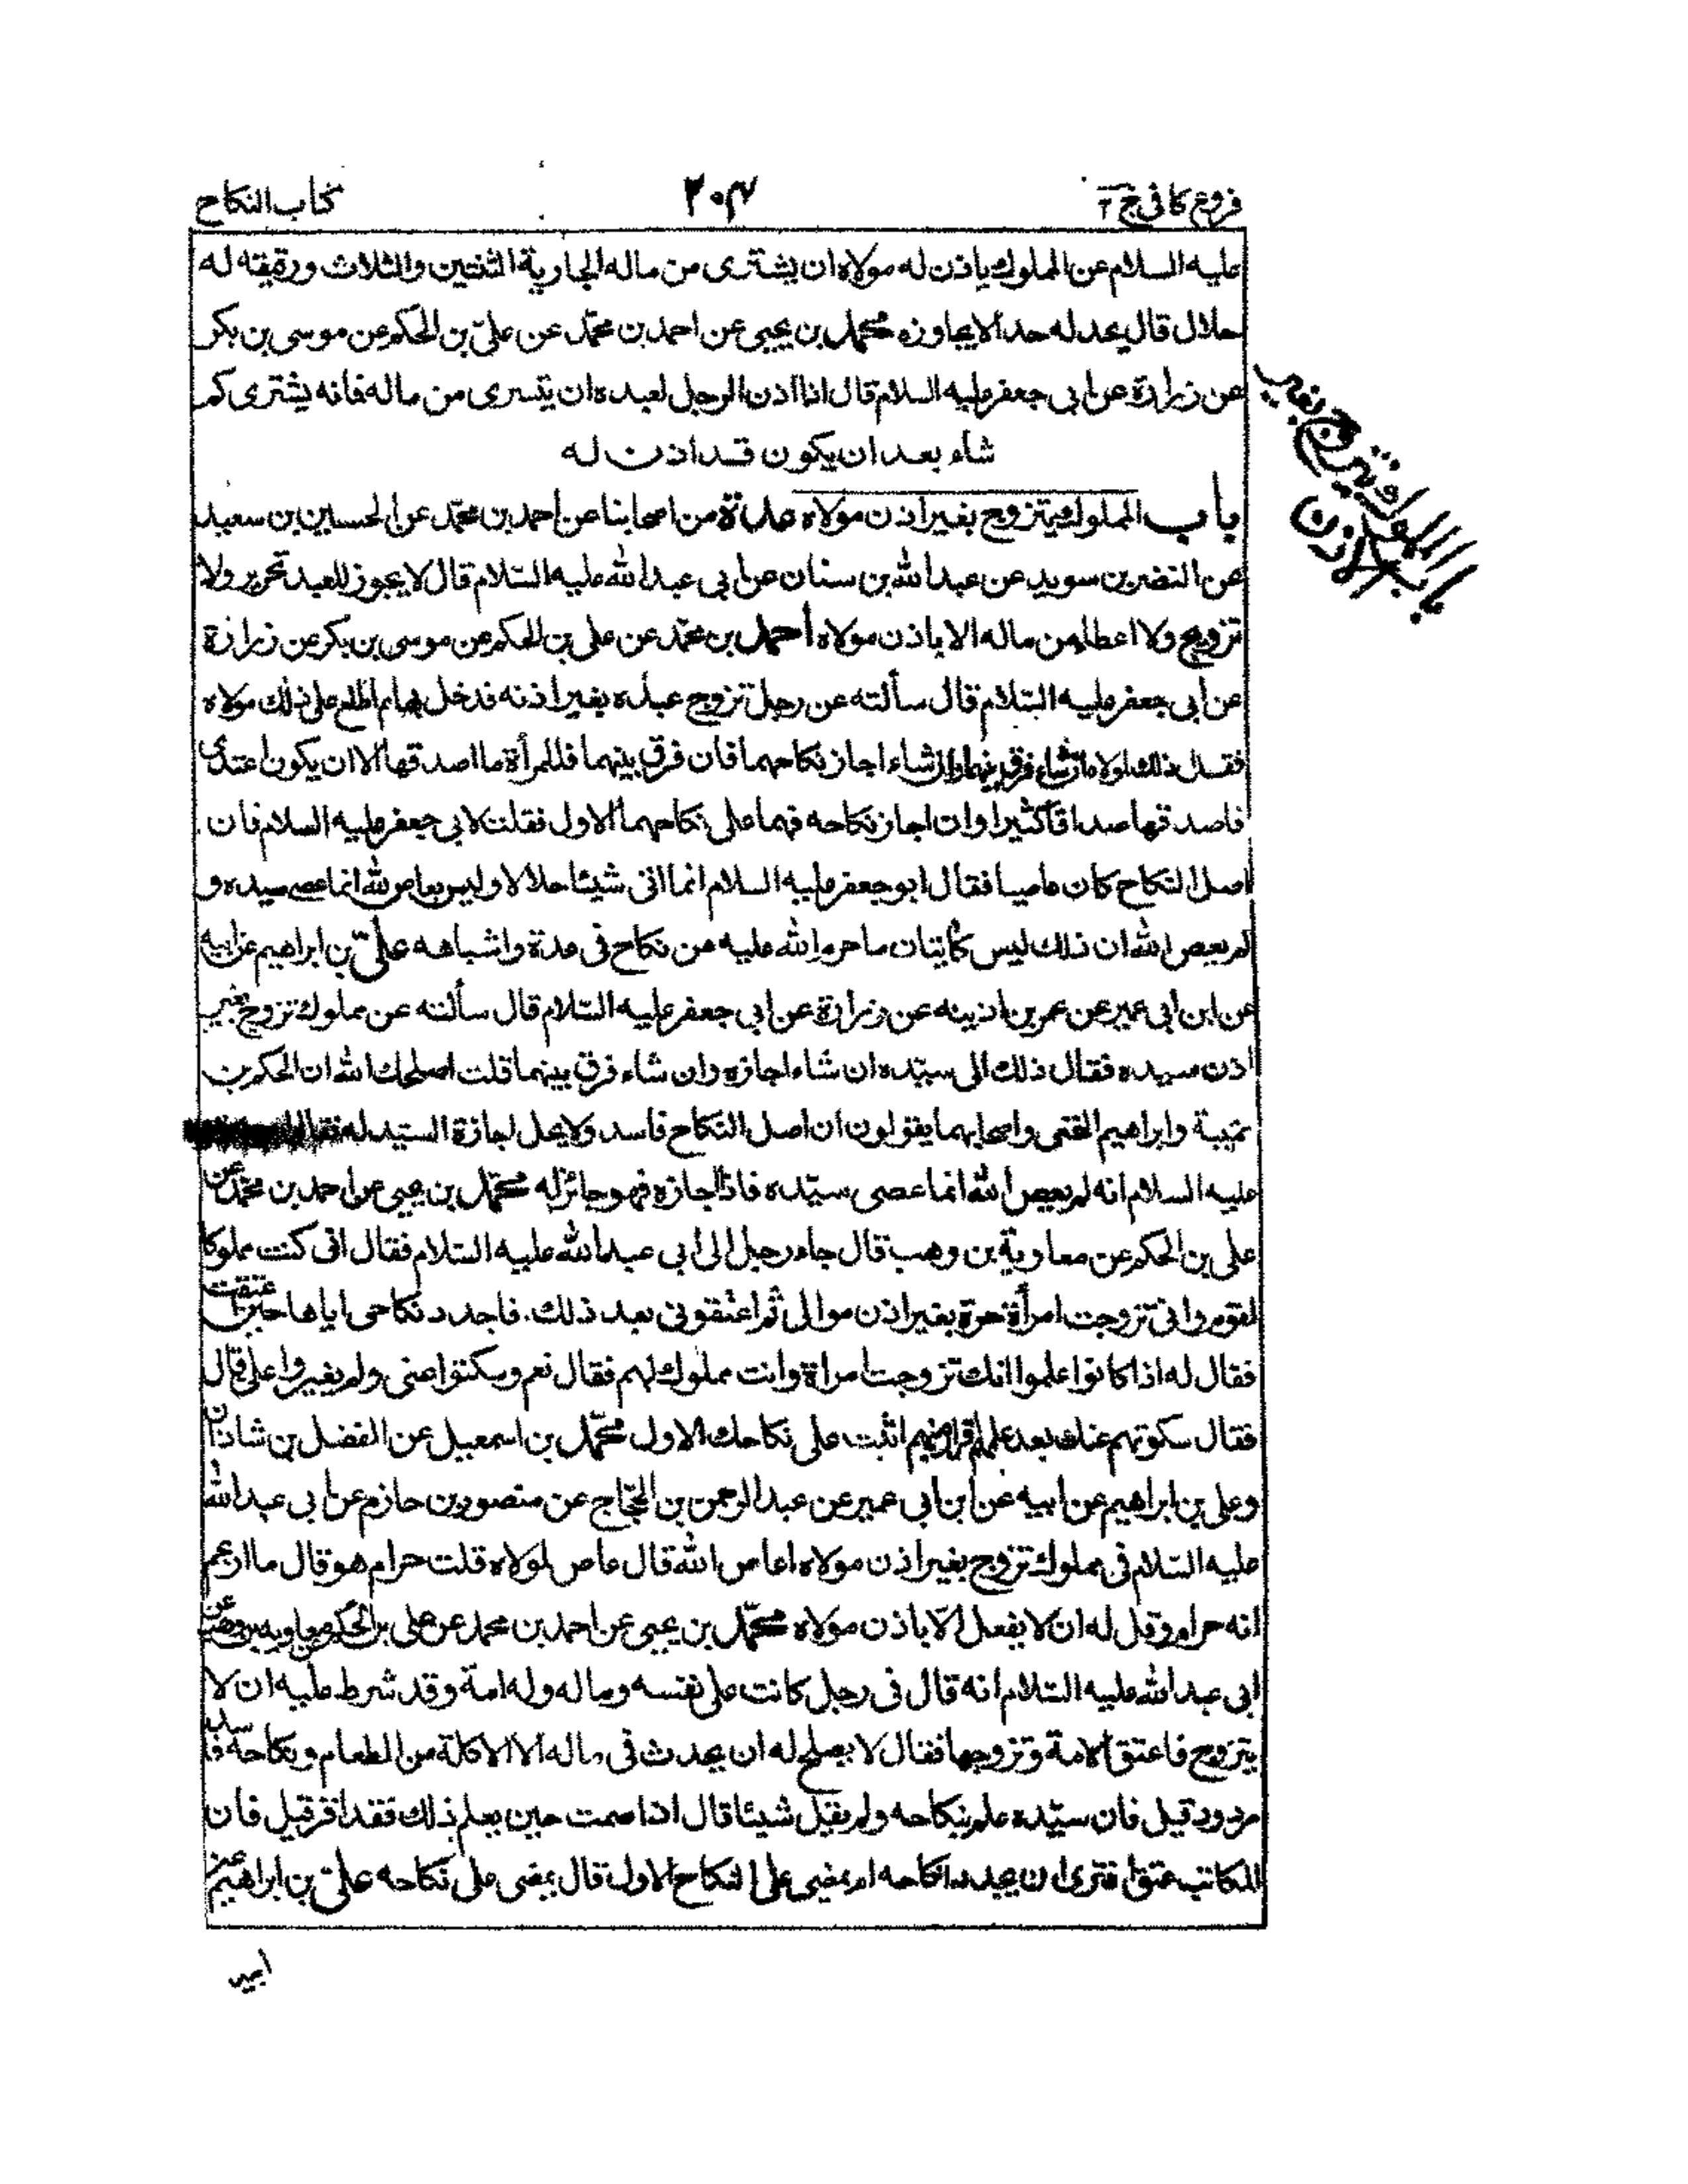 فروع كافى ج ٢
٢٠٤
كتاب النكاح
عليه السلام عن المملوك ياذن له مولاه ان يشترى من ماله الجارية الثنتين والثلاث ورقيقه له
حلال قال يحد له حدا لا يجاوزه محمد بن يحيى عن احمد بن محمد عن علىّ بن الحكم عن موسى بن بكر
عن زرارة عن ابى جعفر عليه السلام قال اذا اذن الرجل لعبده ان يتسرى من ماله فانه يشترى كم
شاء بعد ان يكون قد اذن له
باب المملوك يتزوج بغير اذن مولاه عدة من اصحابنا عن احمد بن محمّد عن الحسين بن سعيد
عن النضر بن سويد عن عبد الله بن سنان عن ابى عبد الله عليه السّلام قال لا يجوز للعبد تحرير ولا
تزويج ولا اعطاء من ماله الا باذن مولاه أحمد بن محمّد عن على بن الحكم عن موسى بن بكر عن زرارة
عن أبى جعفر عليه السّلام قال سألته عن رجل تزوج عبده بغير اذنه فدخل بها ثم اطلع على ذلك مولاه
فقال ذلك لمولاه ان شاء فرق بينهما وان شاء اجاز نكاحهما فان فرق بينهما فللمرأة ما اصدقها الا ان يكون اعتدى
فاصدقها صداقاً كثيرا وان اجاز نكاحه فهما على نكاحهما الاول فقلت لابى جعفر عليه السلام فان
اصل النكاح كان عاصيا فقال ابو جعفر عليه السلام انما اتى شيئا حلالا وليس بعاص لله انما عصى سيده و
لم يعص الله ان ذلك ليس كاتيان ما حرم الله عليه من نكاح فى عدة واشباهه علىّ بن ابراهيم عن ابيه
عن ابن ابى عمير عن عمر بن اذينه عن زرارة عن ابى جعفر عليه السّلام قال سألته عن مملوك تزوج بغير
اذن سيده فقال ذلك الى سيّده ان شاء اجازه وان شاء فرق بينهما قلت اصلحك الله ان الحكم بن
عتيبة وابراهيم النخعى واصحابهما يقولون ان اصل النكاح فاسد ولا يحل اجازة السيّد له فقال
عليه السلام انه لم يعص الله انما عصى سيّده فاذا اجازه فهو جائز له محمّد بن يحيى عن احمد بن محمّد عن
على بن الحكم عن معاوية بن وهب قال جاء رجل الى ابى عبد الله عليه السّلام فقال انى كنت مملوكا
لقوم وانى تزوجت امرأة حرة بغير اذن موالى ثم اعتقونى بعد ذلك. فاجدد نكاحى اياها حين اعتقت
فقال له اذا كانوا علموا انك تزوجت امراة وانت مملوك لهم فقال نعم وسكتوا عنى ولم يغيروا على قال
فقال سكوتهم عنك بعد علمهم اقرار منهم اثبت على نكاحك الاول محمّد بن اسمعيل عن الفضل بن شاذان
وعلى بن ابراهيم عن ابيه عن ابن ابى عمير عن عبد الرحمن بن الحجّاج عن منصور بن حازم عن ابى عبد الله
عليه السّلام فى مملوك تزوج بغير اذن مولاه اعاص الله قال عاص لمولاه قلت حرام هو قال ما ازعم
انه حرام وقل له ان لا يفعل الّا باذن مولاه محمّد بن يحيى عن احمد بن محمد عن على بن الحكم عن معاويه بن وهب عن
ابى عبد الله عليه السّلام انه قال فى رجل كاتب على نفسه وماله وله امة وقد شرط عليه ان لا
يتزوج فاعتق الامة وتزوجها فقال لا يصلح له ان يحدث فى ماله الا الاكلة من الطعام ونكاحه فاسد
مردود قيل فان سيّده علم بنكاحه ولم يقل شيئا قال اذا صمت حين يعلم ذلك فقد اقر قيل فان
المكاتب عتق افترى ان يجدد نكاحه ام يمضى على النكاح الاول قال يمضى على نكاحه علىّ بن ابراهيم عن
ابيه
باب المملوك يتزوج بغير
الاذن